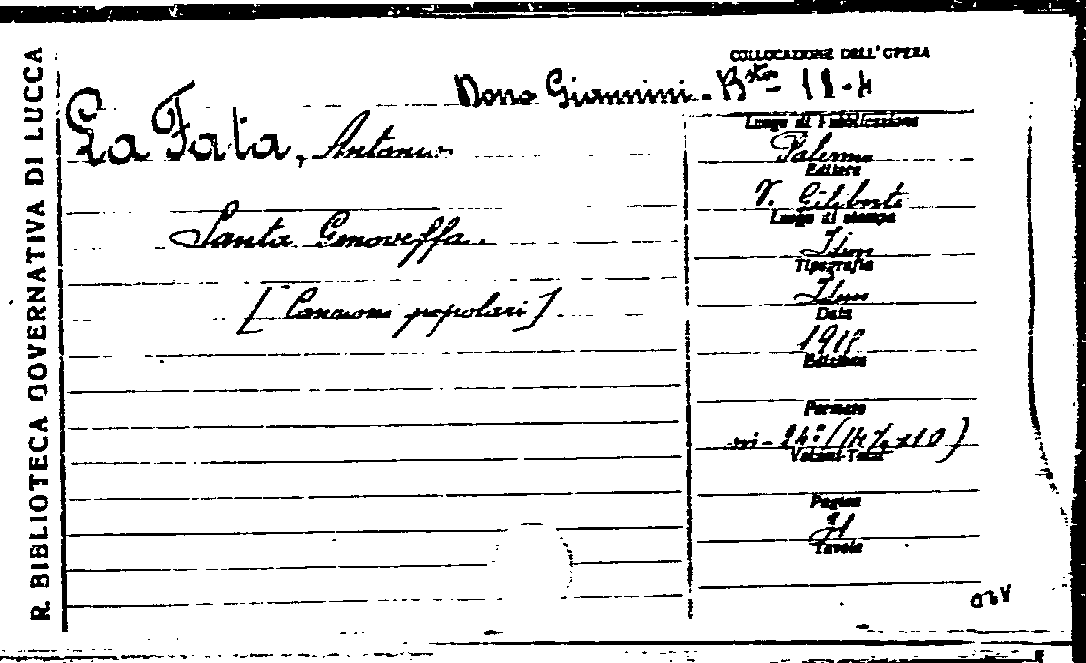 R. BIBLIOTECA GOVERNATIVA DI LUCCA
COLLOCAZIONE DELL'OPERA
Dono Giannini - Bta
La Fata, Antonio
Santa Genoveffa.
[Canzoni popolari].
Luogo di Pubblicazione
Palermo
Editore
V. Giliberti
Luogo di stampa
Idem
Tipografia
Idem
Data
1918
Edizione
Formato
in-24º
Volumi-Tomi
Pagine
Tavole